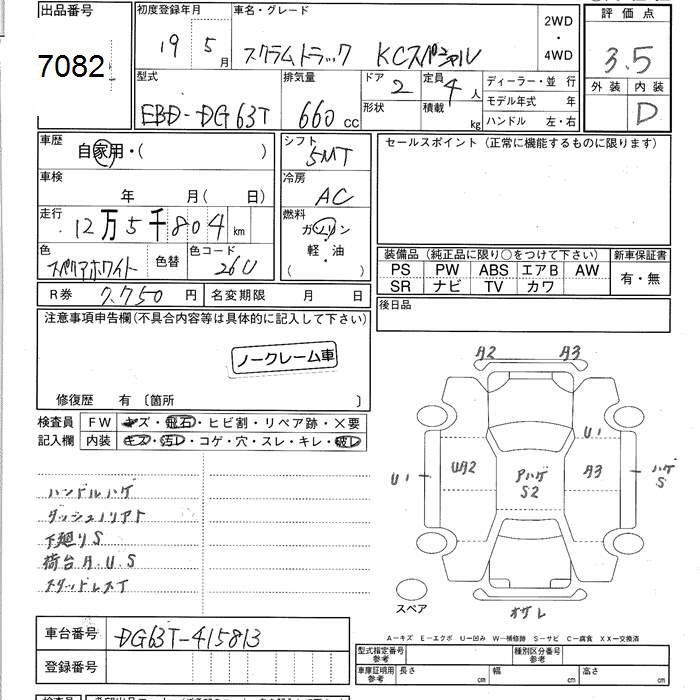 出品番号
7082
初度登録年月
19 5月
車名・グレード
スクラムトラック KCスペシャル
2WD
・
4WD
評価点
3.5
外装 内装
D
型式
EBD-DG63T
排気量
660 cc
ドア 2
形状
定員 4人
積載 kg
ディーラー・並行
モデル年式 年
ハンドル 左・右
車歴
自家用・( )
車検
年 月( 日)
走行
12万5千804 km
色
スペリアホワイト
色替
色コード
26U
シフト
5MT
冷房
AC
燃料
ガソリン
軽・油
( )
セールスポイント (正常に機能するものに限ります)
装備品 (純正品に限り○をつけて下さい)
新車保証書
PS PW ABS エアB AW
SR ナビ TV カワ
有・無
R券 7,750円
名変期限 月 日
後日品
注意事項申告欄(不具合内容等は具体的に記入して下さい)
ノークレーム車
修復歴 有 〔箇所 〕
検査員
記入欄
FW キズ・飛石・ヒビ割・リペア跡・×要
内装 キズ・汚レ・コゲ・穴・スレ・キレ・破レ
ハンドルハゲ
下廻りS
荷台A.U.S
A2 A3
U1
U1 UA2 Pハゲ S2 A3 ハゲ S
スペア
車台番号
DG63T-415813
登録番号
A−キズ E−エクボ U−凹み W−補修跡 S−サビ C−腐食 XX−交換済
型式指定番号
参考
種別区分番号
参考
車庫証明用
参考
長さ cm 幅 cm 高さ cm